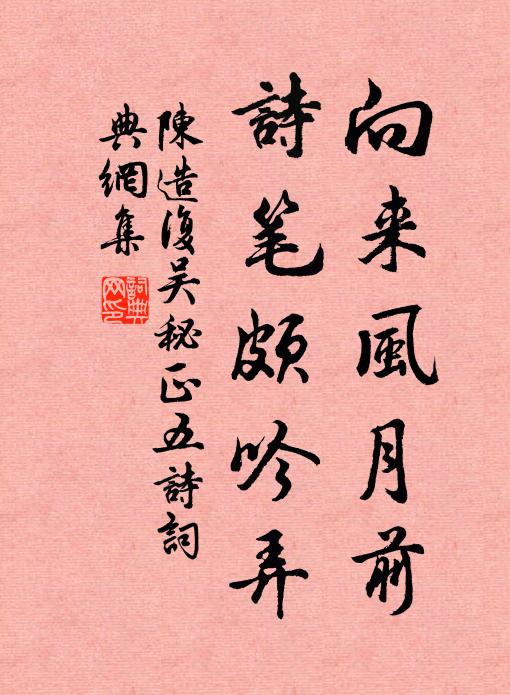 向来風月前
詩笔頗吟弄
陳造復吴秘正五詩詞
典網集
詞典网印